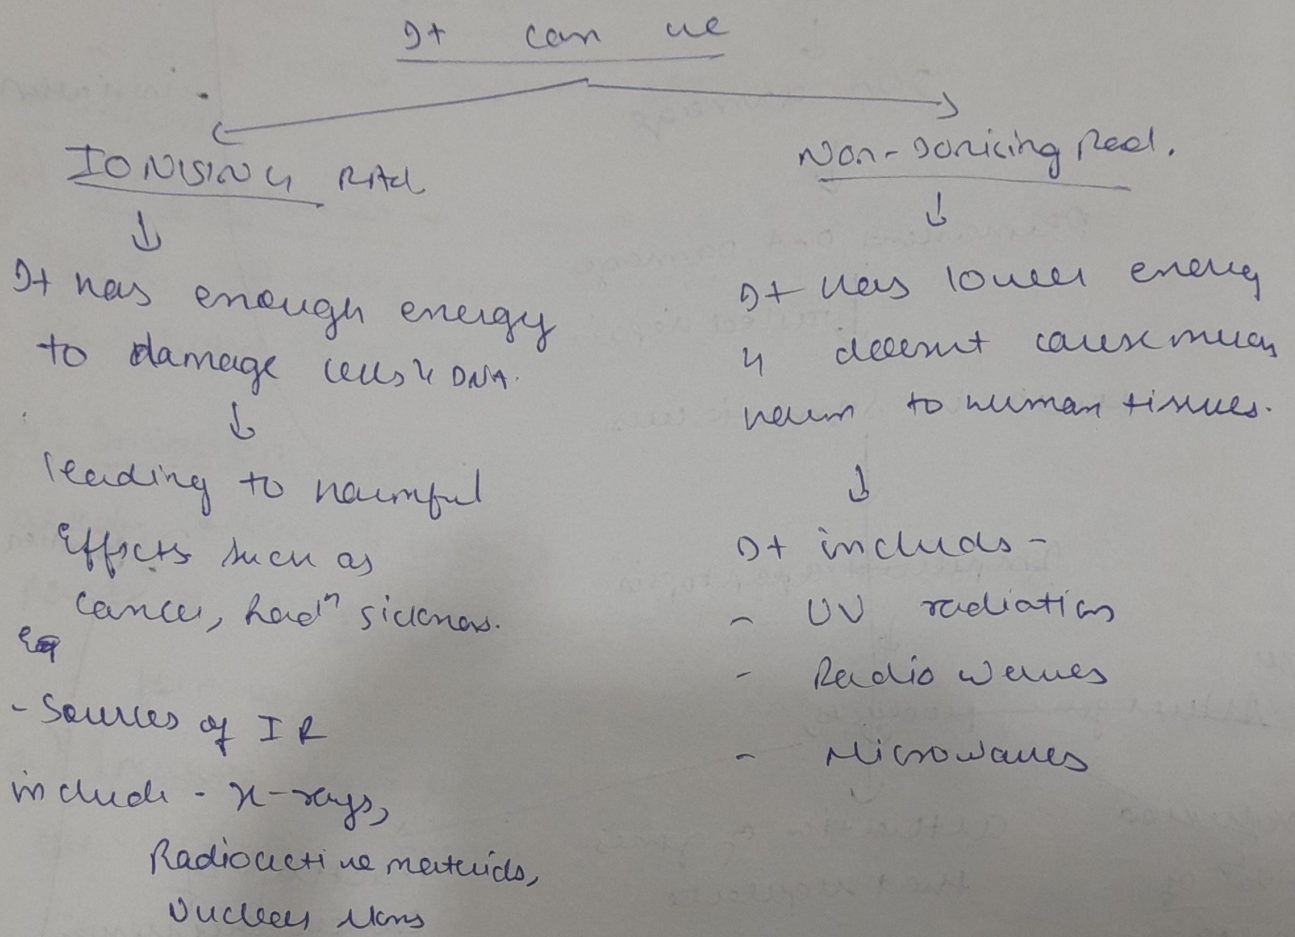 It can be
IONISING Rad
It has enough energy
to damage cells & DNA.
leading to harmful
Effects such as
Cancer, Radn sickness.
Eg
- Sources of IR
include - X-rays,
Radioactive materials,
Nuclear
Non-Ionising Rad.
It has lower energy
& doesn't cause much
harm to human tissues.
It includs -
- UV radiation
- Radio waves
- Microwaves